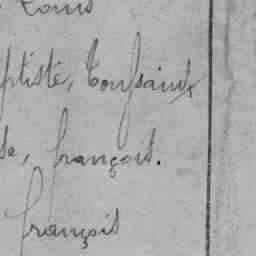 Louis
ptiste, Toussaint
se, François.
François